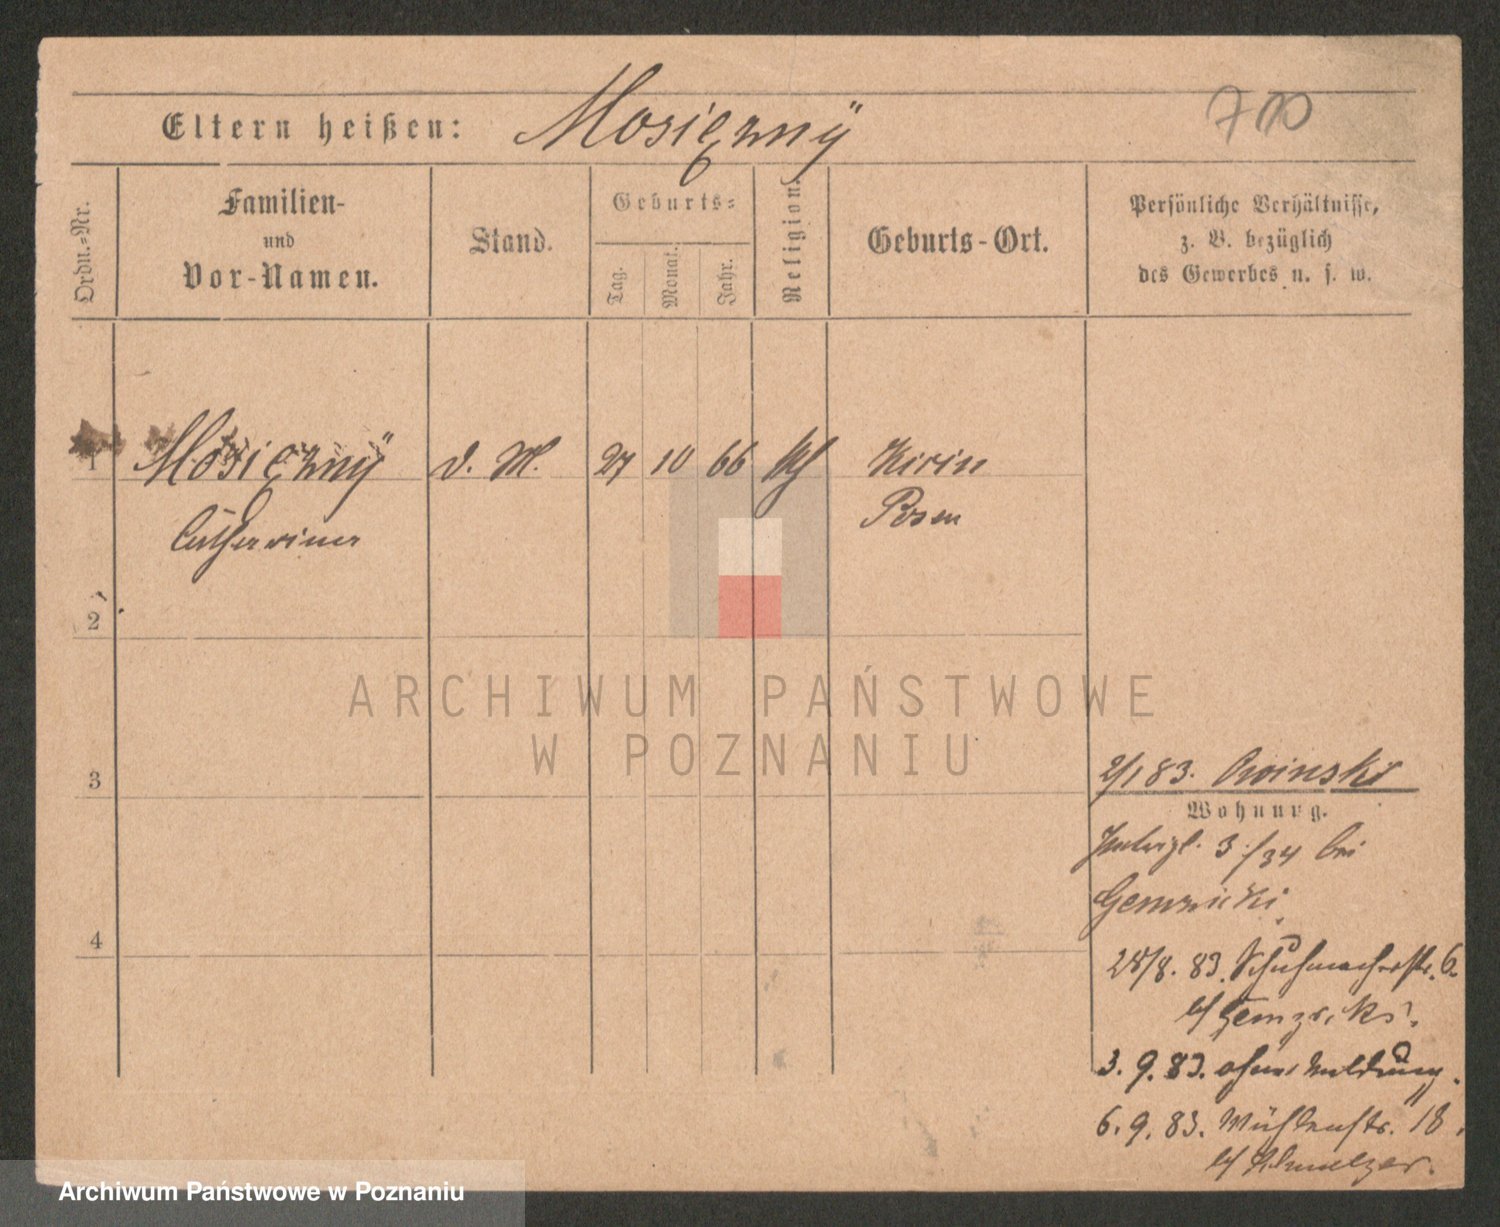 Eltern heißen: Mosiężnÿ
700
Ordn.-Nr.
Familien-
und
Vor-Namen.
Stand.
Geburts-
Tag.
Monat.
Jahr.
Religion.
Geburts-Ort.
Persönliche Verhältnisse,
z. B. bezüglich
des Gewerbes u. s. w.
1 Mosięznÿ d. M. 27 10 66 kþ Kicin
Catharina Posen
2
3
4
2/1 83. Owinski
Wohnung.
3/34 bei
28/8. 83. Schuhmacherstr. 6.
b/
3. 9. 83. ohne Meldung.
6. 9. 83. Mühlenstr. 18.
b/ Schmelzer.
ARCHIWUM PAŃSTWOWE
W POZNANIU
Archiwum Państwowe w Poznaniu